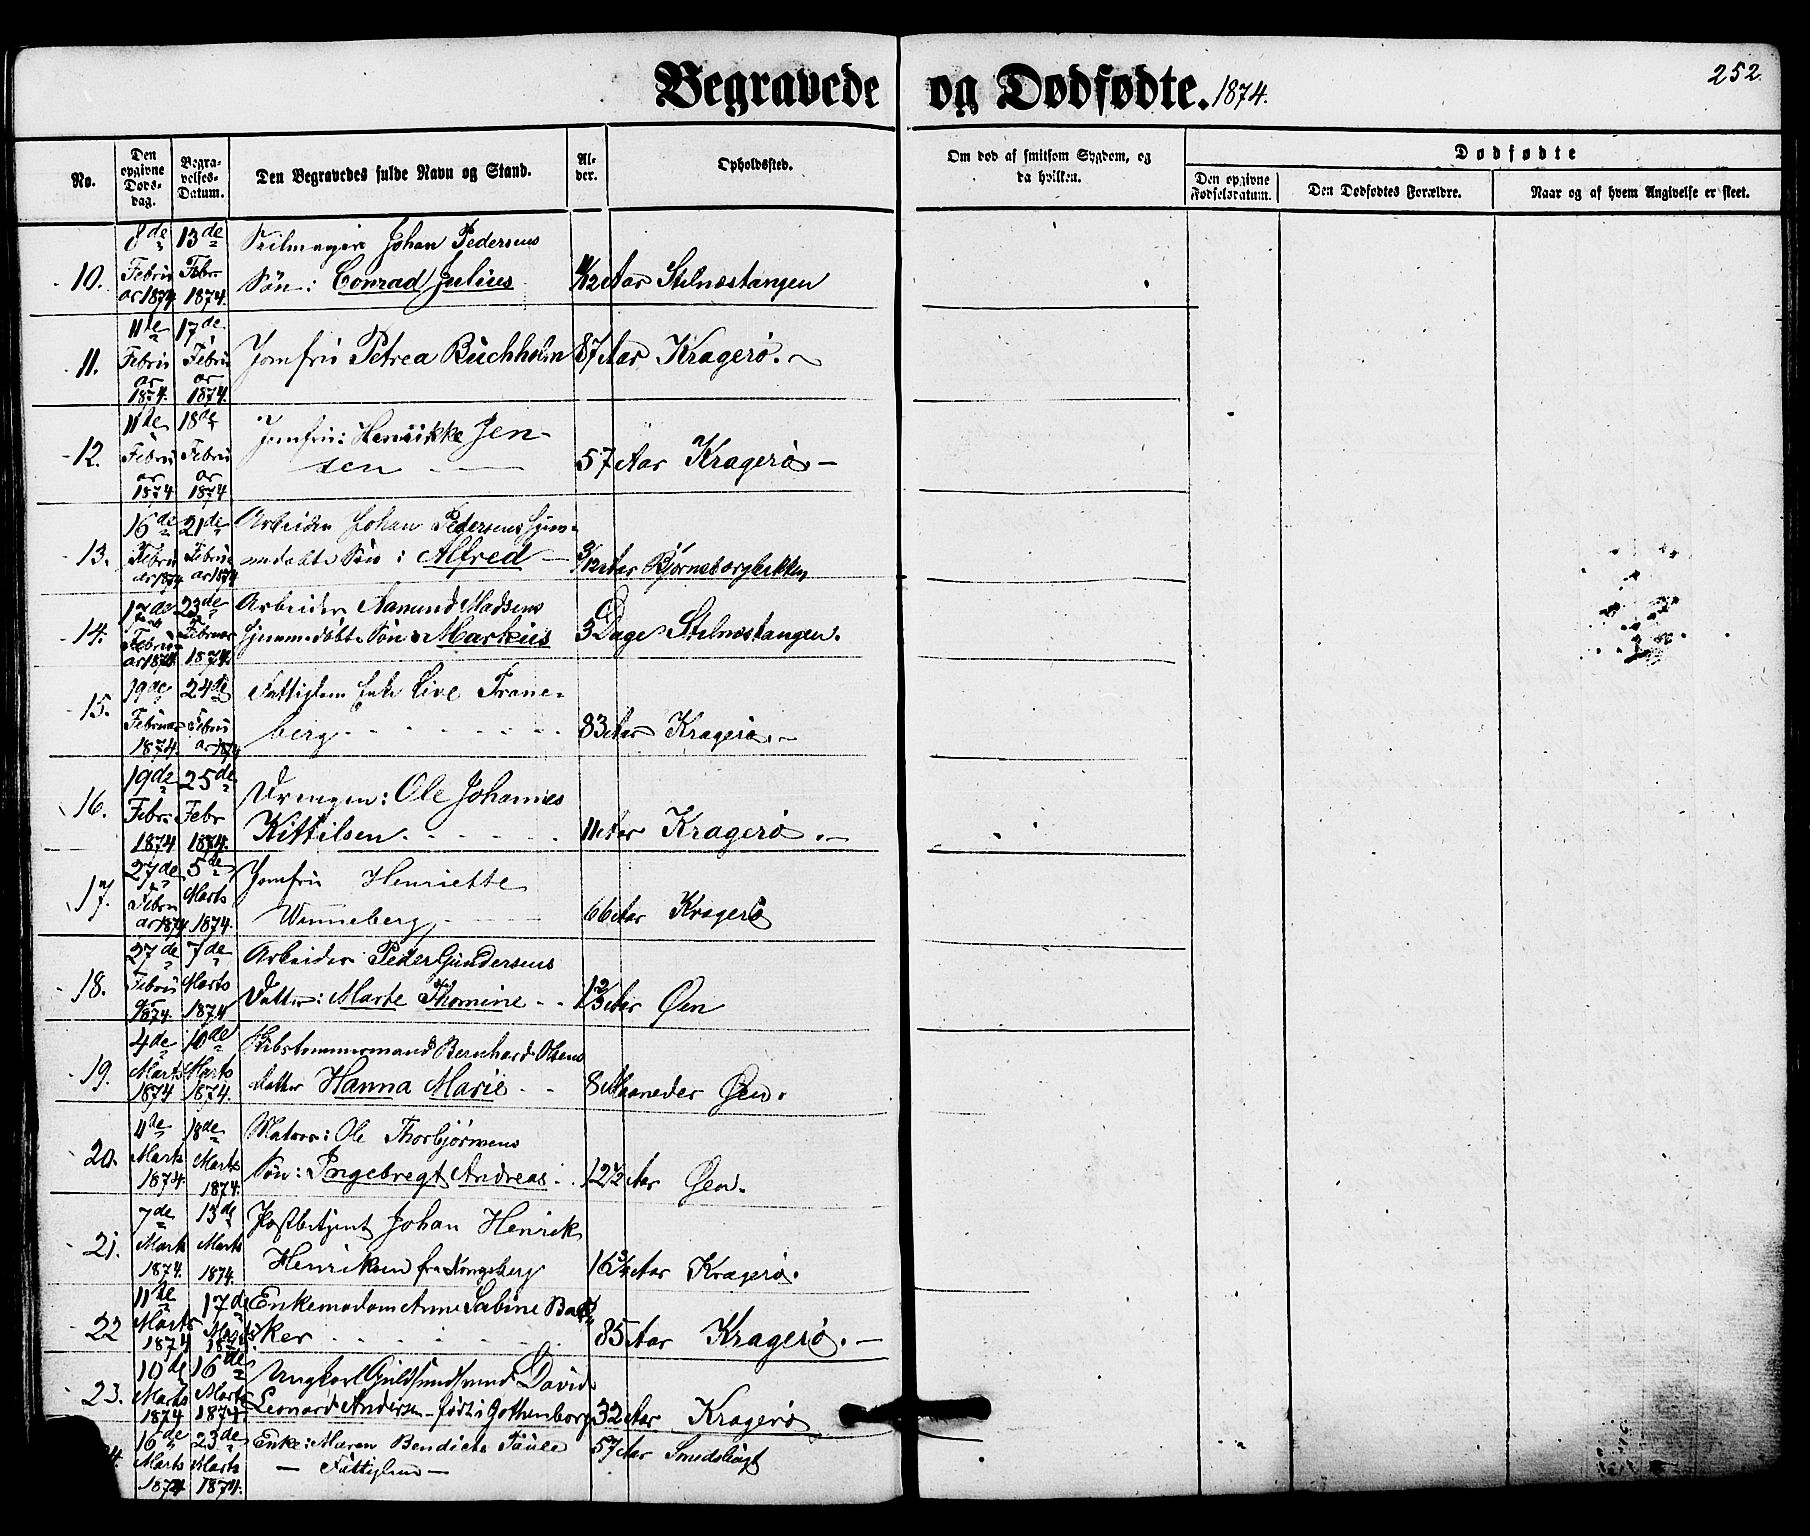 Begravede og Dødfødte. 1874.
252.
No.
Den opgivne Døds-dag.
Begra-velses-Datum.
Den Begravedes fulde Navn og Stand.
Al-der.
Opholdssted.
Om død af smitsom Sygdom, og da hvilken.
Dødfødte
Den opgivne Fødselsdatum.
Den Dødfødtes Forældre.
Naar og af hvem Angivelse er skeet.
10. 8de Februar 1874. 13de Febr. 1874. Seilmager Johan Pedersens
Søn: Conrad Julius 11/12 Aar Stilnæstangen
11. 11te Februar 1874. 17de Februar 1874. Jomfru Petrea Buchholm 87 Aar Kragerø.
12. 11te Februar 1874 18de Februar 1874 Jomfru: Henrikke Jen-
sen 57 Aar Kragerø
13. 16de Februar 1874 21de Februar 1874 Arbeider Johan Pedersens hjem-
medøbte Søn: Alfred 3/12 Aar
14. 17de Februar 1874 23de Februar 1874. Arbeider Aamund Madsens
hjemmedøbte Søn: Markus 3 Dage Stilnæstangen.
15. 19de Februar 1874. 24de Februar 1874 Fattiglem Enke Live Trane-
berg 83 Aar Kragerø.
16. 19de Febr. 1874 25de Febr 1874. Drengen: Ole Johannes
Kittilsen. 11 Aar Kragerø.
17. 27de Februar 1874. 5de Marts 1874. Jomfru Henriette
Wenneberg 66 Aar Kragerø
18. 27de Februar 1874. 7de Marts 1874 Arbeider Peder Gundersens
Datter: Marte Thomine 1 2/3 Aar Øen
19. 4de Marts 1874 10de Marts 1874. Skibstømmermand Bernhard Olsens
datter Hanna Marie 8 Maaneder Øen.
20. 11te Marts 1874. 18de Marts 1874. Matros: Ole Thorbjørnsens
Søn: Ingebregt Andreas 12 1/2 Aar Øen.
21. 7de Marts 1874. 13de Marts 1874. Postbetjent Johan Henrik
Henriksen fra Kongsberg 16 3/4 Aar Kragerø.
22 11te Marts 1874 17de Marts 1874. Enkemadam Anne Sabine Bak-
ker 85 Aar Kragerø.
23. 10de Marts 1874 16de Marts 1874. Ungkarl Guldsmedsvend David
Leonard Andersen født i Gothenborg 32 Aar Kragerø
4. 16de Marts 1874 23de Marts 1874. Enke: Maren Bendicte Saule
Fattiglem 57 Aar Smedsbugt